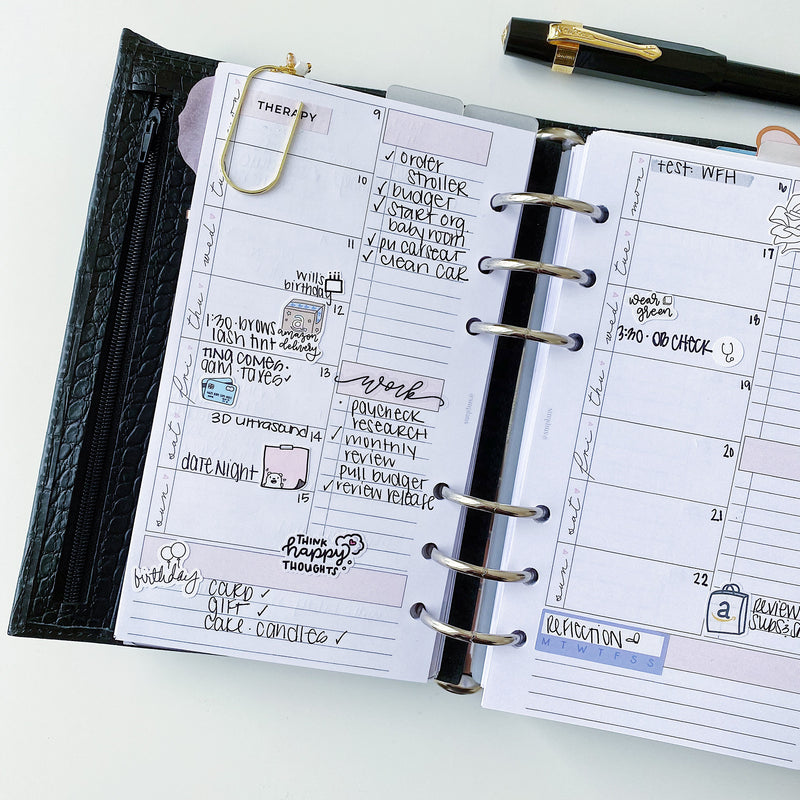 mon
THERAPY
9
tue
10
wed
11
thu
wills
birthday
12
1:30 · brows
lash tint
amazon
delivery
fri
13
TINA COMES ·
9am · TAXES ✓
sat
3D ultrasound 14
date NIGHT
sun
15
THINK
happy
THOUGHTS
birthday
CARD ✓
GIFT ✓
CAKE · CANDLES ✓
✓ order
stroller
✓ budget
✓ start org.
baby room
✓ pu carseat
✓ clean car
work
· paycheck
research
✓ monthly
review
pull budget
✓ review release
mon
test · WFH
16
tue
17
wed
wear
green
18
3:30 · OB CHECK
thu
19
fri
20
sat
21
sun
22
a
REVIEW
SUBS & SA
REFLECTION
M T W T F S S